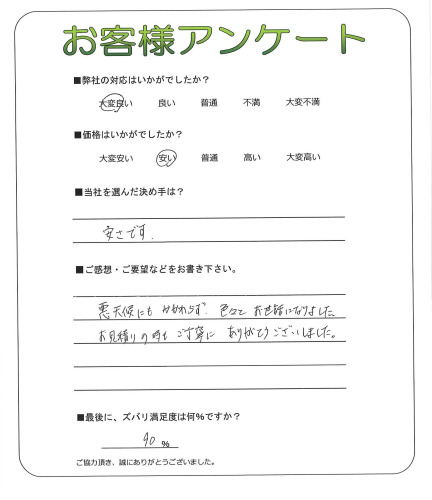 お客様アンケート
■弊社の対応はいかがでしたか？
大変良い 良い 普通 不満 大変不満
■価格はいかがでしたか？
大変安い 安い 普通 高い 大変高い
■当社を選んだ決め手は？
安さです.
■ご感想・ご要望などをお書き下さい。
悪天候にもかかわらず. 色々と お世話になりました.
お見積りの時も ご丁寧に ありがとうございました。
■最後に、ズバリ満足度は何％ですか？
90 %
ご協力頂き、誠にありがとうございました。